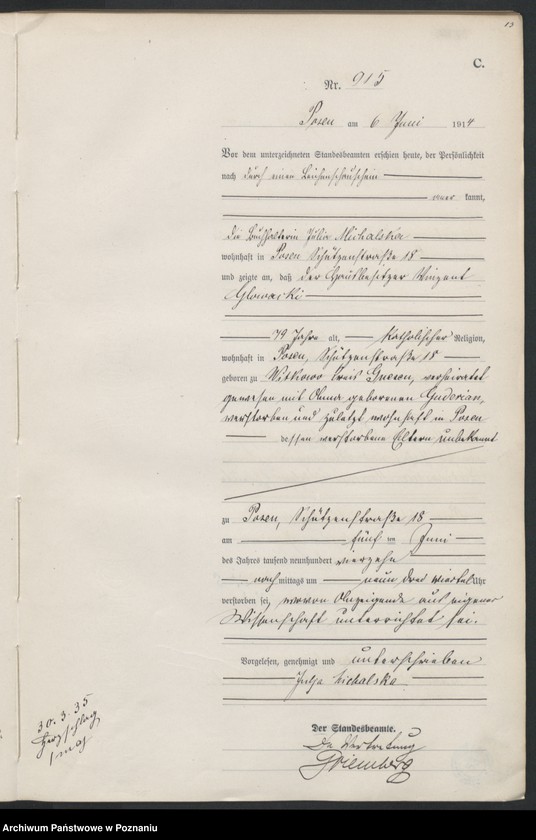 13
C.
Nr. 915
Posen am 6 Juni 1914
Vor dem unterzeichneten Standesbeamten erschien heute, der Persönlichkeit
nach durch einen Leichenschauschein
kannt,
die Buchhalterin Julia Michalska
wohnhaft in Posen Schützenstraße 18
und zeigte an, daß der Hausbesitzer Vinzent
Glowacki
79 Jahre alt, katholischer Religion,
wohnhaft in Posen, Schützenstraße 18
geboren zu Witkowo Kreis Gnesen, verheiratet
gewesen mit Anna geborenen Guderian,
verstorben und zuletzt wohnhaft in Posen
dessen verstorbene Eltern unbekannt
zu Posen, Schützenstraße 18
am fünf ten Juni
des Jahres tausend neunhundert vierzehn
nach mittags um neun drei viertel Uhr
verstorben sei, wovon Anzeigende aus eigener
Wissenschaft unterrichtet sei.
Vorgelesen, genehmigt und unterschrieben
Julja Michalska
Der Standesbeamte.
In Vertretung
30.3.35
Archiwum Państwowe w Poznaniu